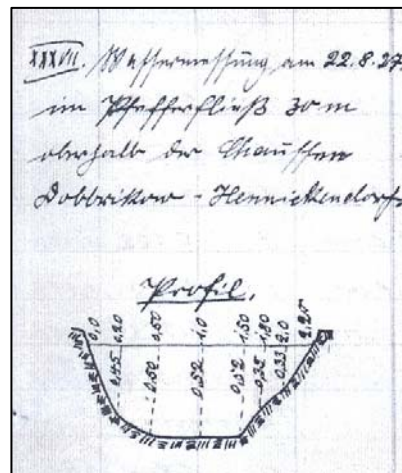 XXXVII. Wassermessung am 22.8.27.
im Pfefferfließ 30 m
oberhalb der Chaussee
Dobbrikow - Hennickendorf
Profil.
0,0 0,20 0,50 1,0 1,50 1,80 2,0 2,25
0,45 0,50 0,52 0,35 0,33